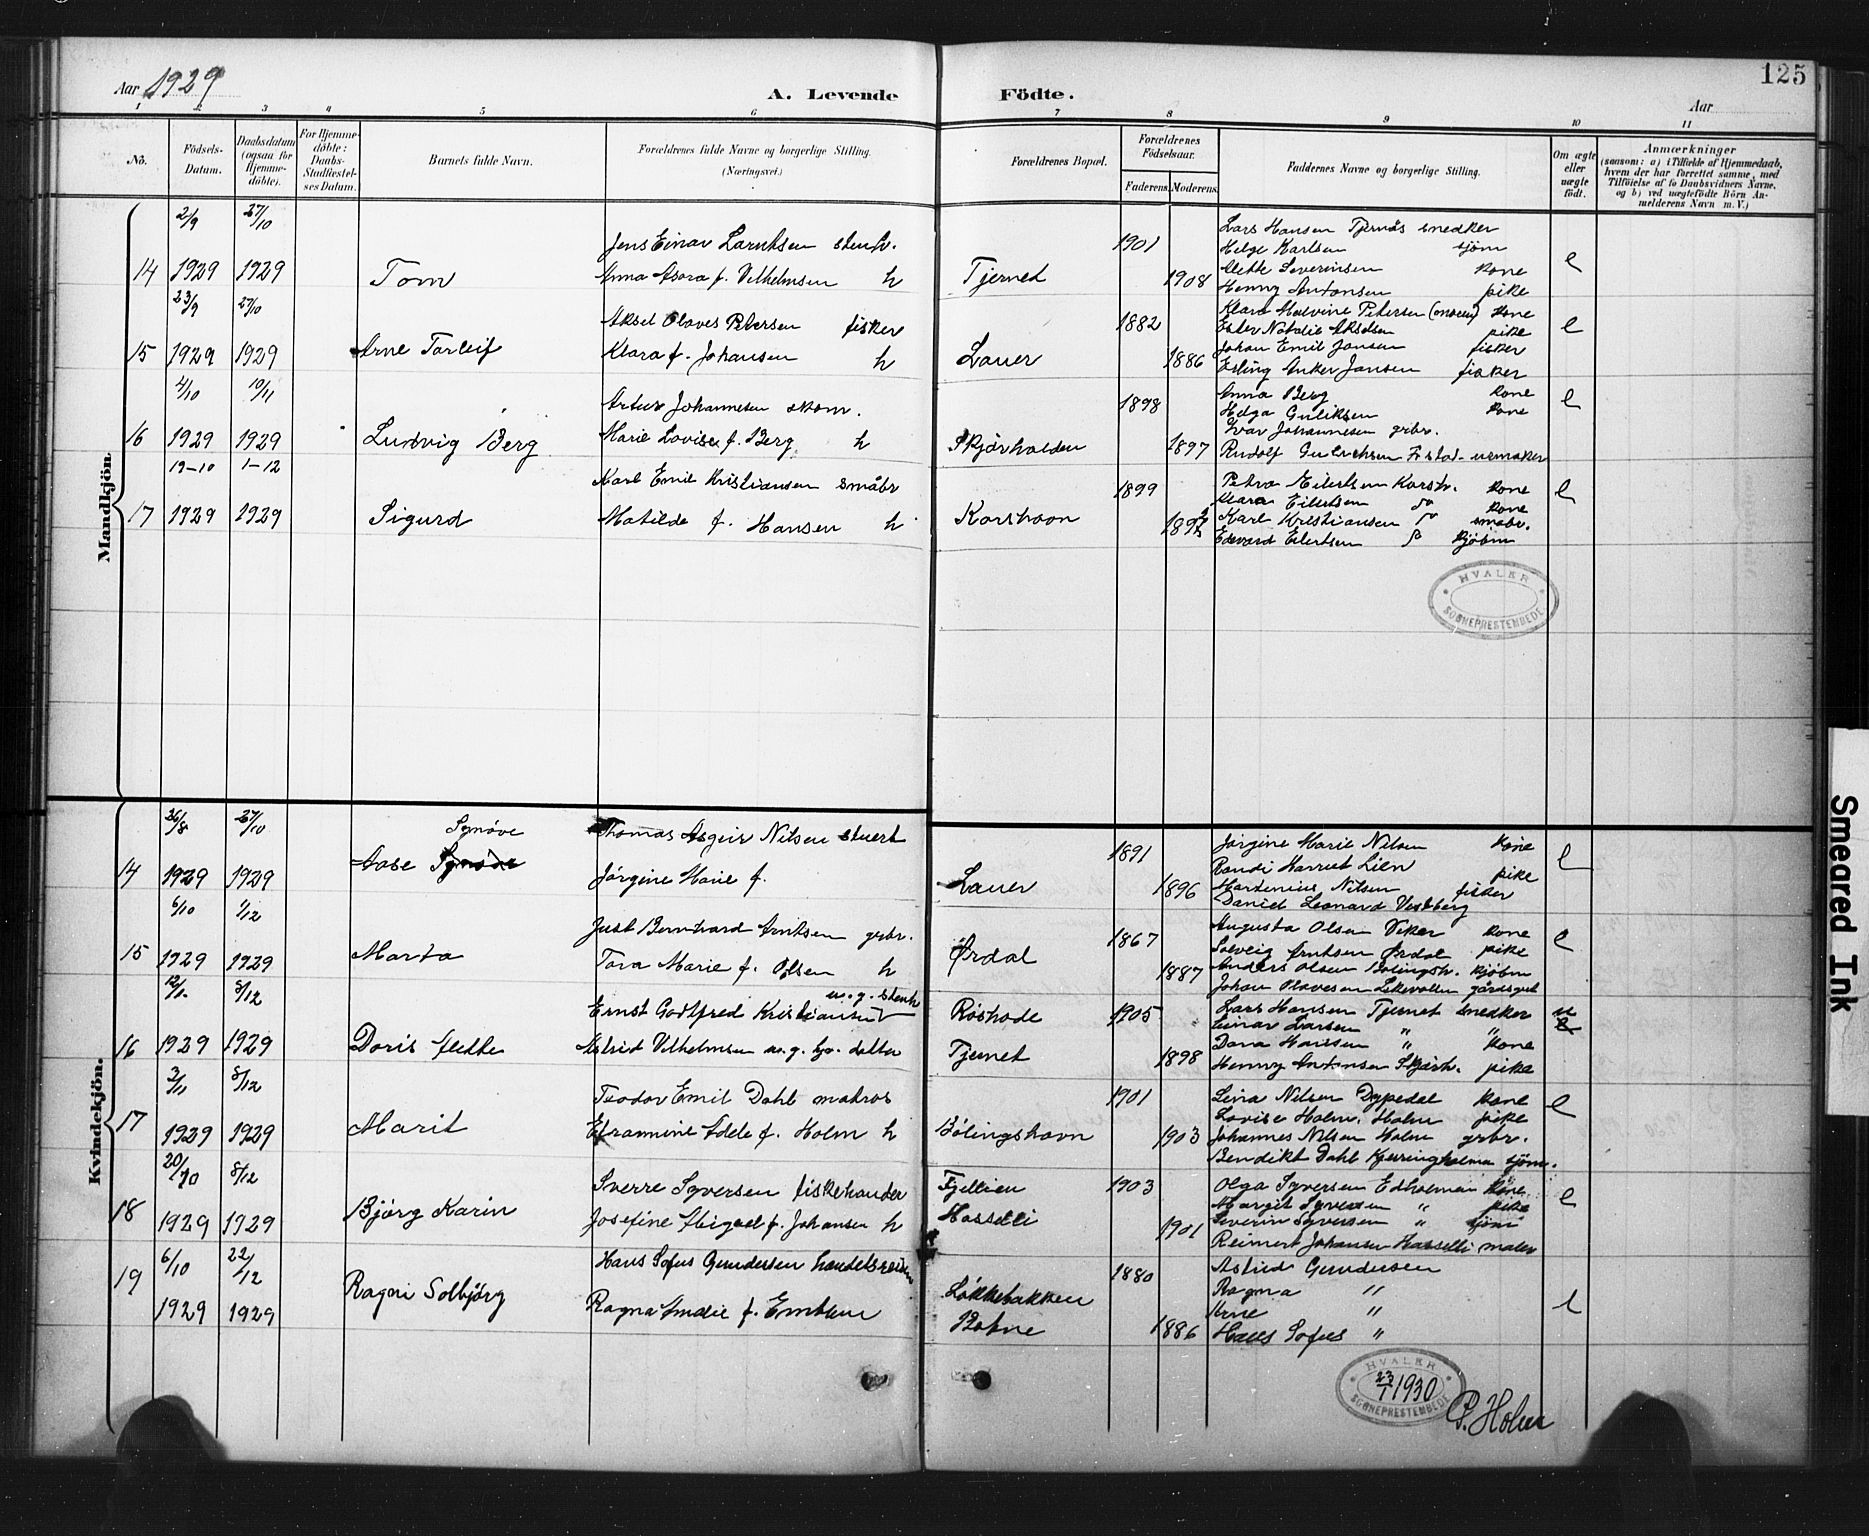 Aar 1929
A. Levende
Födte.
Aar
125
1 2 3 4 5 6 7 8 9 10 11
No. Födsels-Datum. Daabsdatum (ogsaa for Hjemmedöbte). For Hjemmedöbte: Daabs-Stadfæstelses Datum. Barnets fulde Navn. Forældrenes fulde Navne og borgerlige Stilling. (Næringsvei.)
Forældrenes Bopæl. Forældrenes Födselsaar. Faderens. Moderens. Faddernes Navne og borgerlige Stilling. Om ægte eller uægte födt. Anmærkninger
(saasom: a) i Tilfælde af Hjemmedaab, hvem der har forrettet samme, med Tilföielse af to Daabsvidners Navne, og b) ved uægtefödte Börn Anmelderens Navn m. V.)
Mandkjön.
2/9 27/10
Jens Einar Larntsen stenh. 1901 Lars Hansen Tjernæs snedker
Helge Karlsen sjöm
14 1929 1929 Tom Anna Asora f. Vilhelmsen h Tjernet 1908 Mette Severinsen kone e
Henny Antonsen pike
23/9 27/10
Aksel Olaves Petersen fisker 1882 Klara Malvine Petersen kone
Ester Natalie Akselsen pike e
15 1929 1929 Arne Torleif Klara f. Johansen h Lauer 1886 Johan Emil Jansen fisker
Erling Anker Jansen fisker
4/10 10/11
Artur Johannesen skom. 1898 Anna Berg kone e
Helga Guliksen kone
Ivar Johannesen grbr.
16 1929 1929 Ludvig Berg Marie Lovise f. Berg h Skjærhalden 1897 Rudolf urmaker
19-10 1-12
Karl Emil Kristiansen småbr 1899 Petra Eilertsen Korsh. kone e
Klara Eilertsen kone
17 1929 1929 Sigurd Matilde f. Hansen h Korshavn Karl Kristiansen småbr.
Edevard Eilertsen kjöbm
HVALER
SOGNEPRESTEMBEDE
Kvindekjön.
26/8 27/10
Synøve Thomas Asgeir Nilsen stuert 1891 Jörgine Marie Nilsen kone e
14 1929 1929 Aase Synøve Jørgine Marie f. Lauer 1896 Randi Harriet Lien pike
Martinius Nilsen fisker
Daniel Leonard Vestberg
6/10 1/12
Just Bernhard Arntsen grbr. 1867 Augusta Olsen Viker kone e
Solveig Arntsen Ørdal pike
15 1929 1929 Marta Tora Marie f. Olsen h Ørdal 1887 Anders Olsen Bølingsh. kjöbm
Johan Olavesen
8/12
u. g. stenh
Ernst Godtfred Kristiansen Røshode 1905 Lars Hansen Tjernet snedker
Einar Larsen " "
16 1929 1929 Doris Mette Astrid Vilhelmsen u. g. hj. datter Tjernet 1898 Dora Hansen " kone
Henny Antonsen Skjærh. pike
3/11 8/12
Teodor Emil Dahl matros 1901 Lina Nilsen Dypedal kone e
Lovise Holm, Holm pike
17 1929 1929 Marit Eframine Adele f. Holm h Bölingshavn 1903 Johannes Nilsen Holm grbr.
Bendikt Dahl Kjerringholmen sjöm.
20/10 8/12
Sverre Syversen fiskehandler Fjellien 1903 Olga Syversen Edholmen kone e
Margit Syversen " pike
18 1929 1929 Bjørg Karin Josefine Abigael f. Johansen h Hasselli 1901 Severin Syversen " sjöm
Reimert Johansen Hasselli maler
6/10 22/12
Hans Sofus Gundersen handelsreisen 1880 Astrid Gundersen
19 Ragni Solbjørg Løkkebakken Ragna "
1929 1929 Ragna Amalie f. Emblem Botne 1886 Arne " e
Hans Sofus "
HVALER
23/1 1930
SOGNEPRESTEMBEDE
P. Holm
Smeared Ink